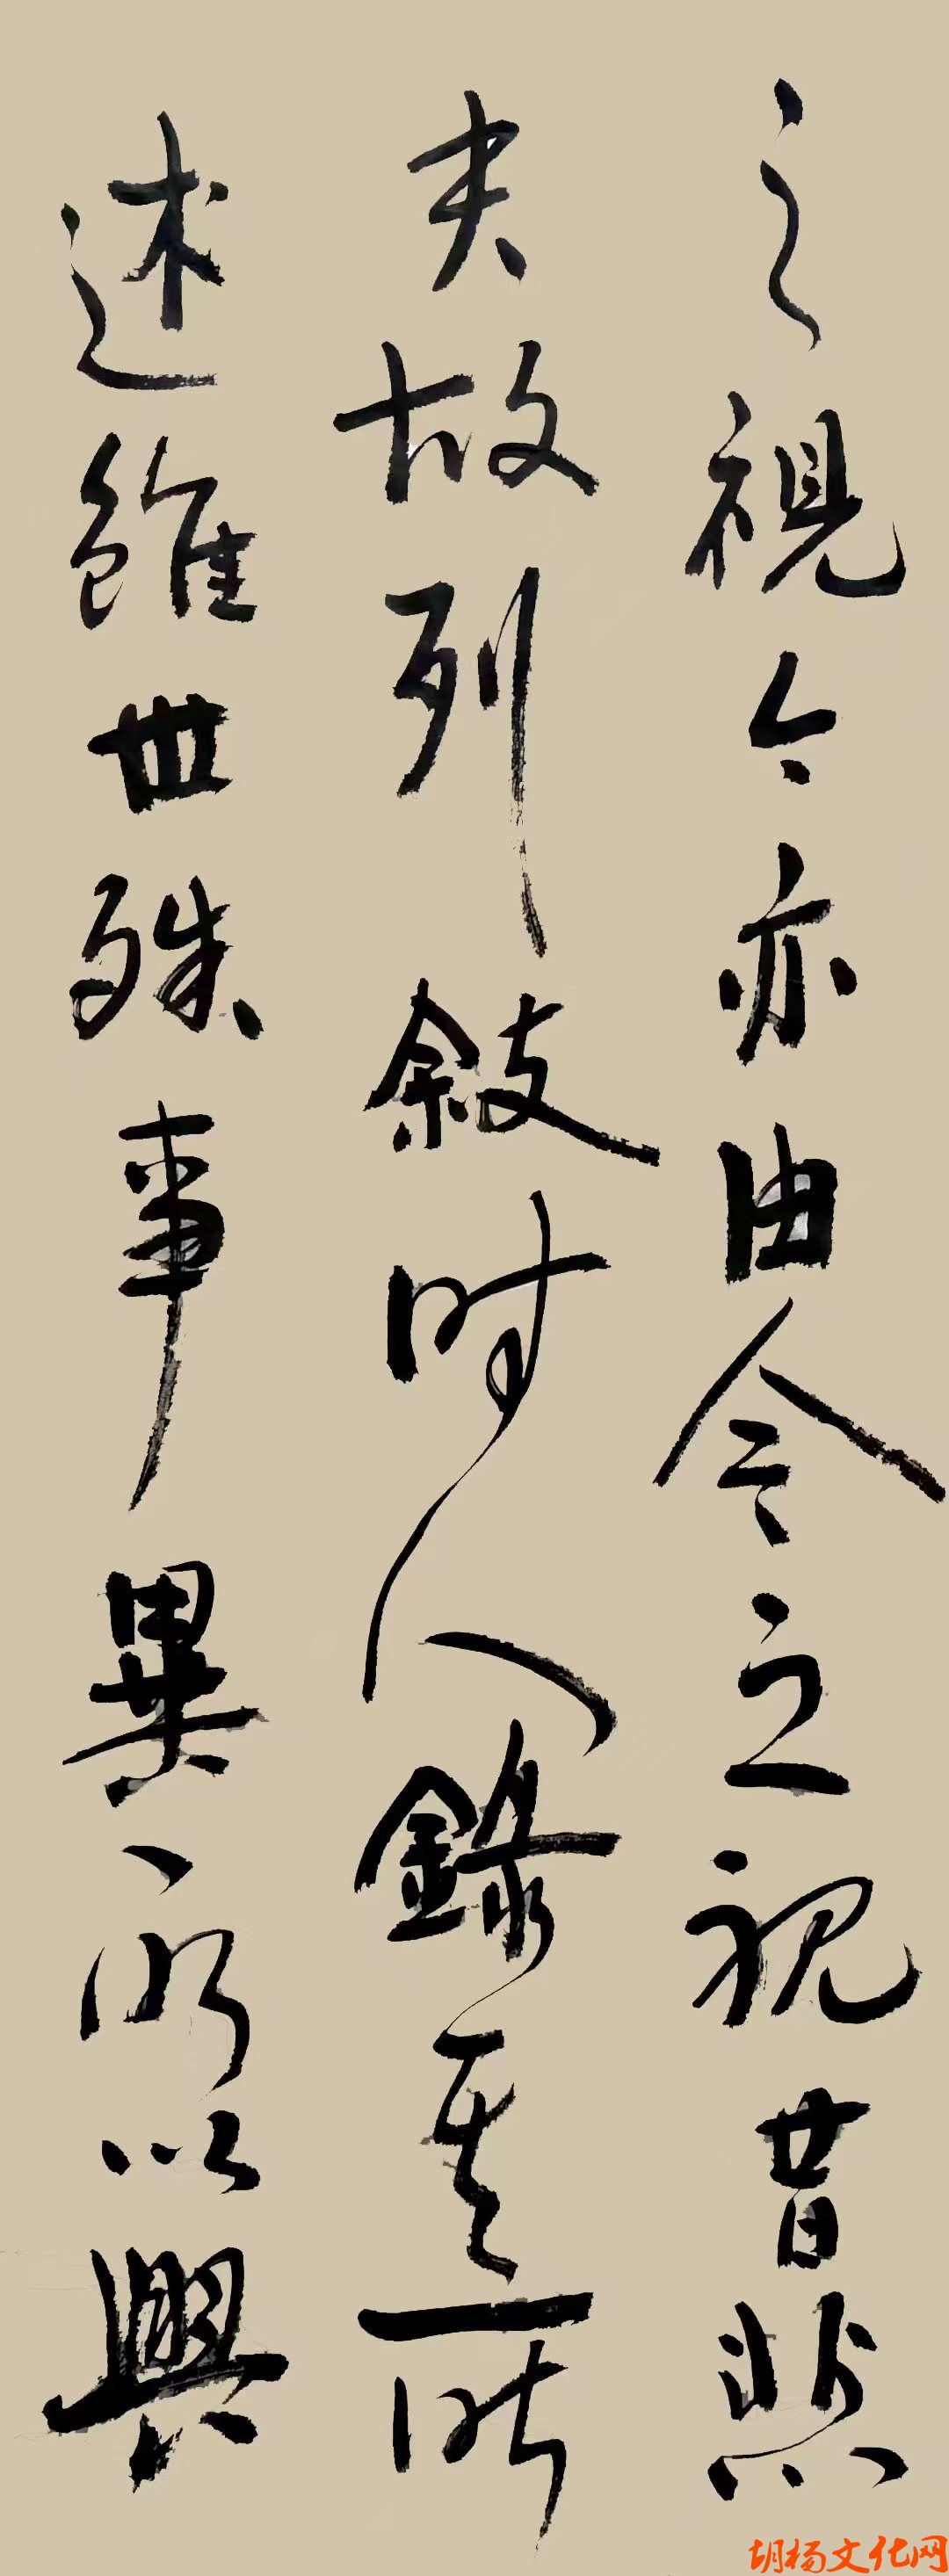 之視今亦由今之視昔悲
夫故列敘时人錄其所
述雖世殊事異所以興
胡杨文化网